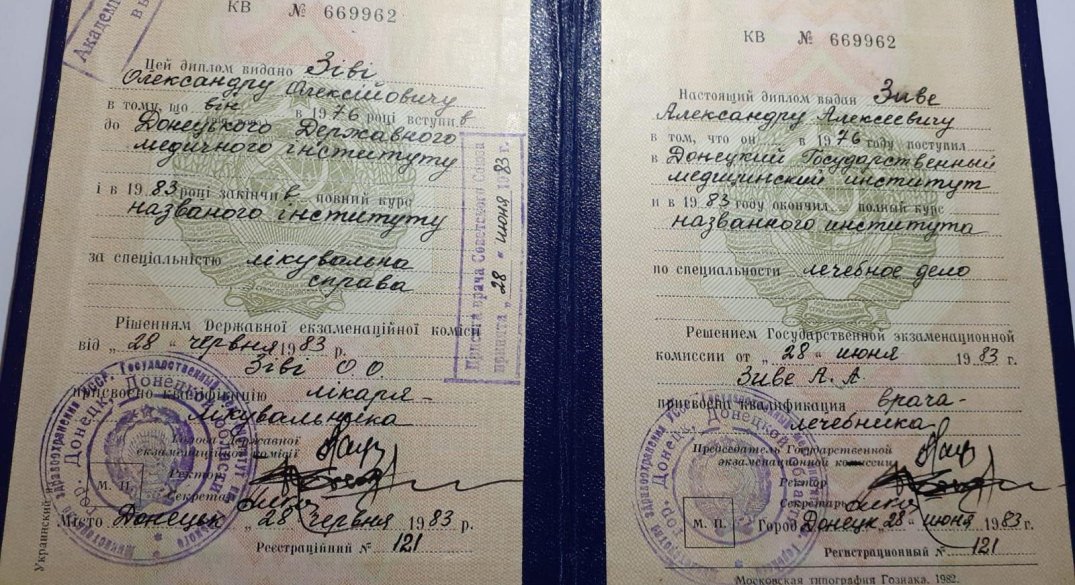 Академи
КВ № 669962
Цей диплом видано Зіві
Олександру Олексійовичу
в тому, що він в 1976 році вступив
до Донецького Державного
медичного інституту
і в 1983 році закінчив повний курс
названого інституту
за спеціальністю лікувальна
справа
Рішенням Державної екзаменаційної комісії
від „28“ червня 1983 р.
Зіві О.О.
присвоєно кваліфікацію лікаря-
лікувальника
Голова Державної
екзаменаційної комісії
Ректор
Секретар
М. П.
Місто Донецьк „28“ червня 1983 р.
Реєстраційний № 121
Украинский
Присяга врача Советского Союза
принята „28“ июня 1983 г.
КВ № 669962
Настоящий диплом выдан Зиве
Александру Алексеевичу
в том, что он в 1976 году поступил
в Донецкий Государственный
медицинский институт
и в 1983 году окончил полный курс
названного института
по специальности лечебное дело
Решением Государственной экзаменационной
комиссии от „28“ июня 1983 г.
Зиве А.А
присвоена квалификация врача-
лечебника
Председатель Государственной
экзаменационной комиссии
Ректор
Секретарь
М. П.
Город Донецк „28“ июня 1983 г.
Регистрационный № 121
Московская типография Гознака. 1982.